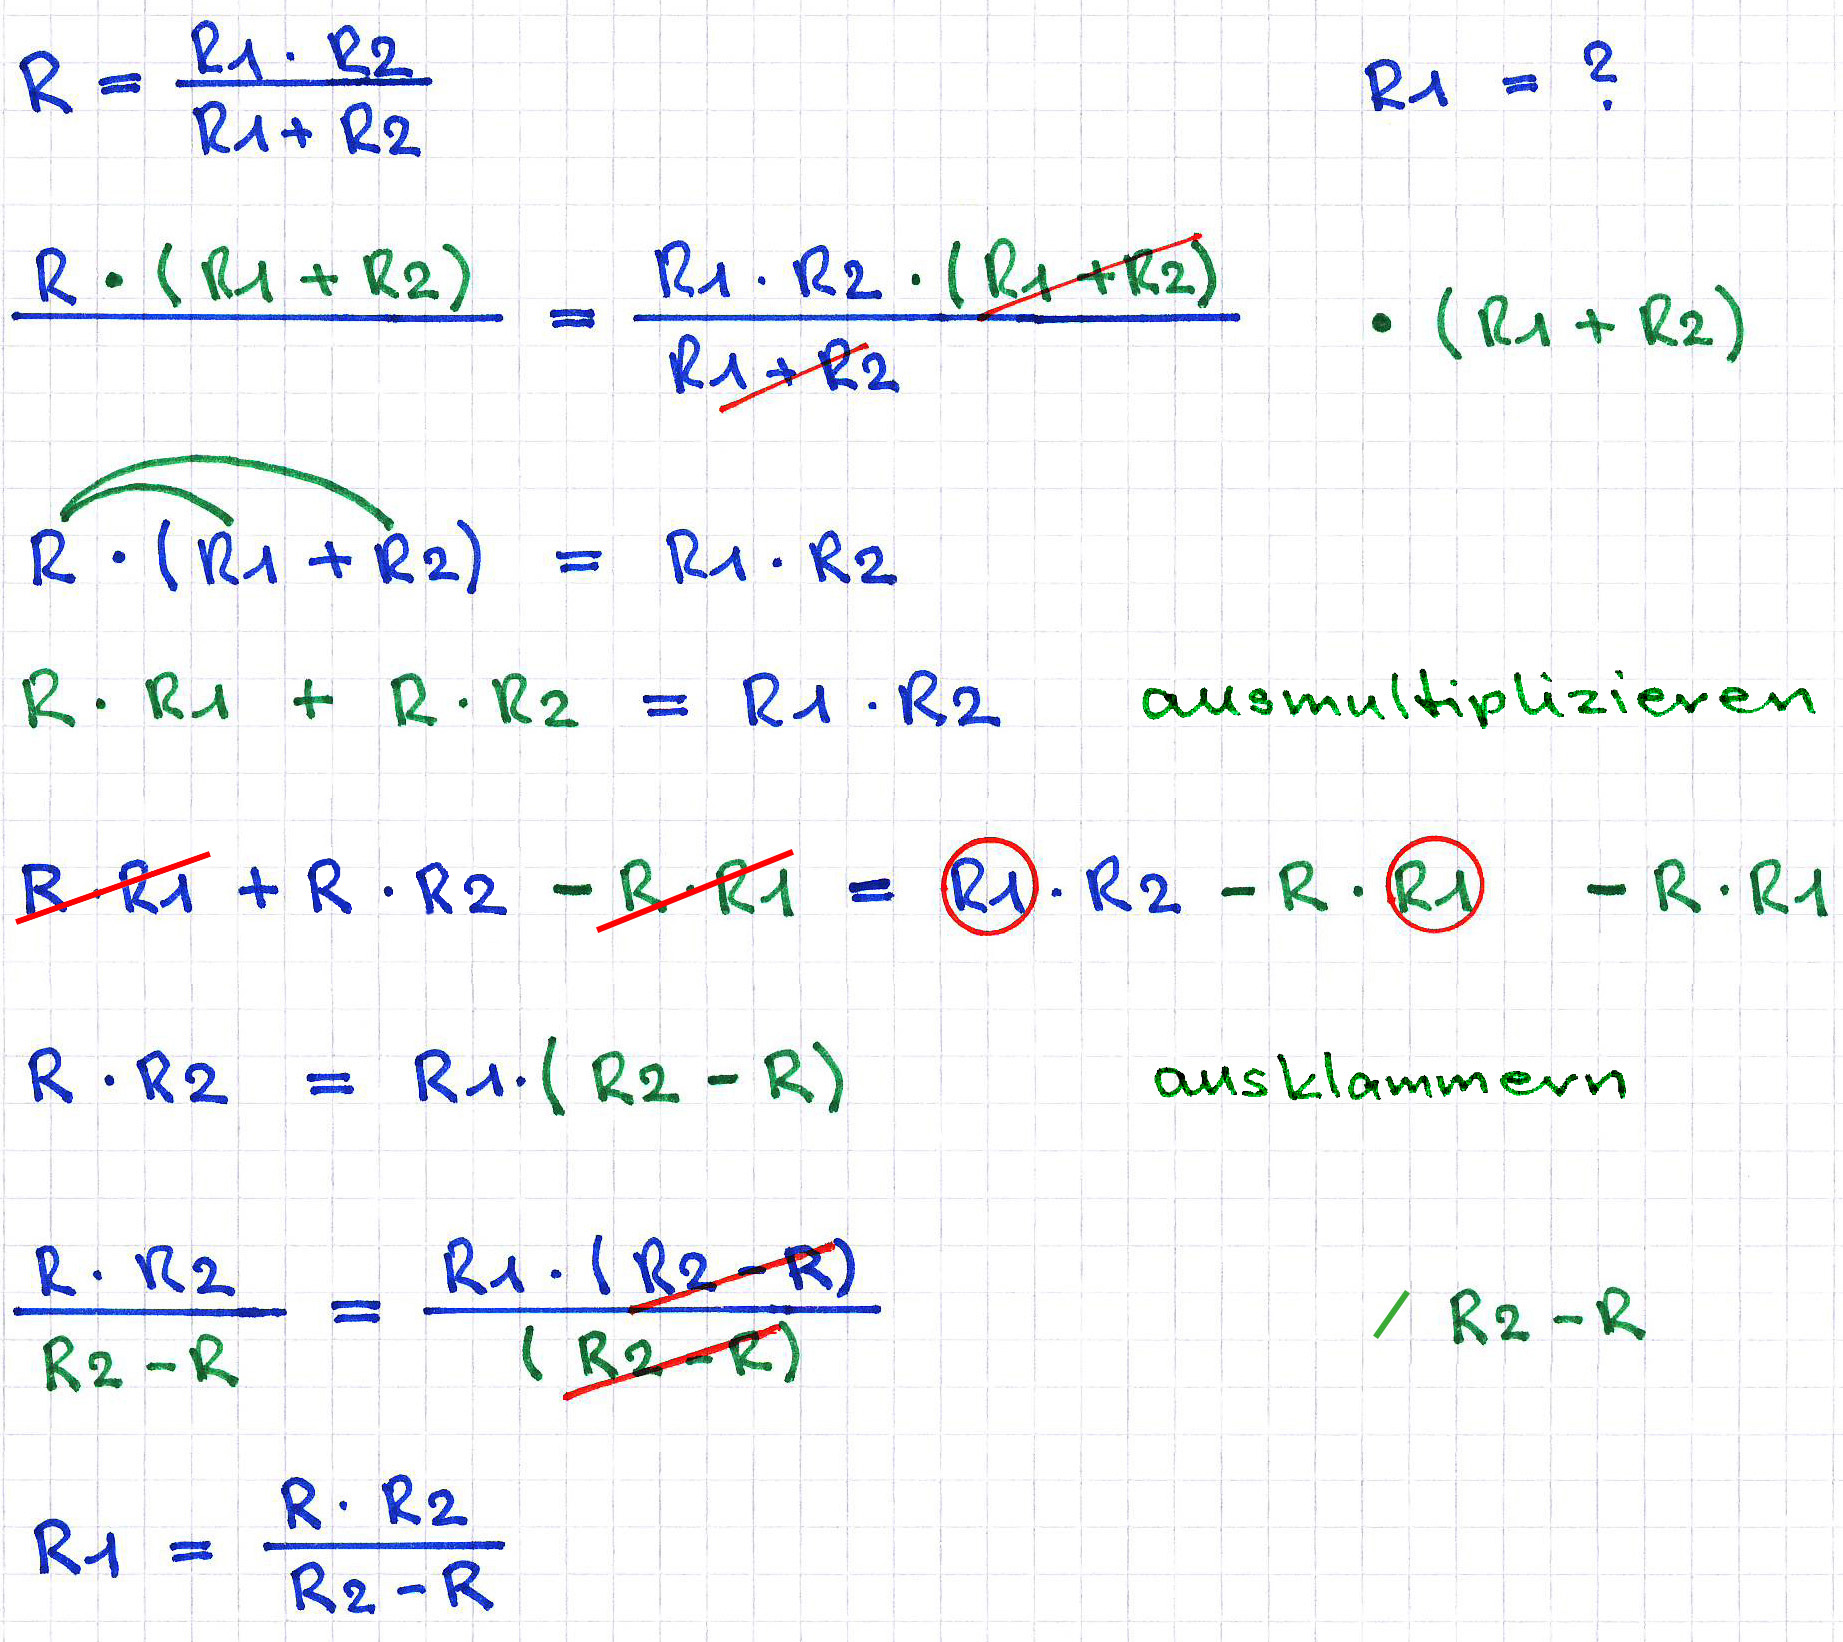 R = (R1 · R2) / (R1 + R2) R1 = ?
R · (R1 + R2) = (R1 · R2 · (R1 + R2)) / (R1 + R2) · (R1 + R2)
R · (R1 + R2) = R1 · R2
R · R1 + R · R2 = R1 · R2 ausmultiplizieren
R · R1 + R · R2 - R · R1 = R1 · R2 - R · R1 - R · R1
R · R2 = R1 · (R2 - R) ausklammern
(R · R2) / (R2 - R) = (R1 · (R2 - R)) / (R2 - R) / R2 - R
R1 = (R · R2) / (R2 - R)